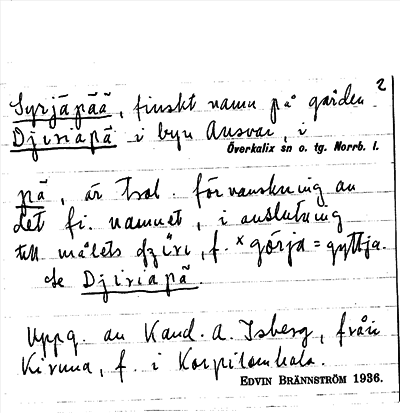 2
Syrjäpää, finskt namn på gården
Djiriapä i byn Ansvar, i
Överkalix sn o. tg. Norrb. l.
pä, är trol. förvanskning av
det fi. namnet, i anslutning
till målets djiri, f. × görja = gyttja.
Se Djiriapä.
Uppg. av Kand. A. Isberg, från
Kiruna, f. i Korpilombolo.
EDVIN BRÄNNSTRÖM 1936.